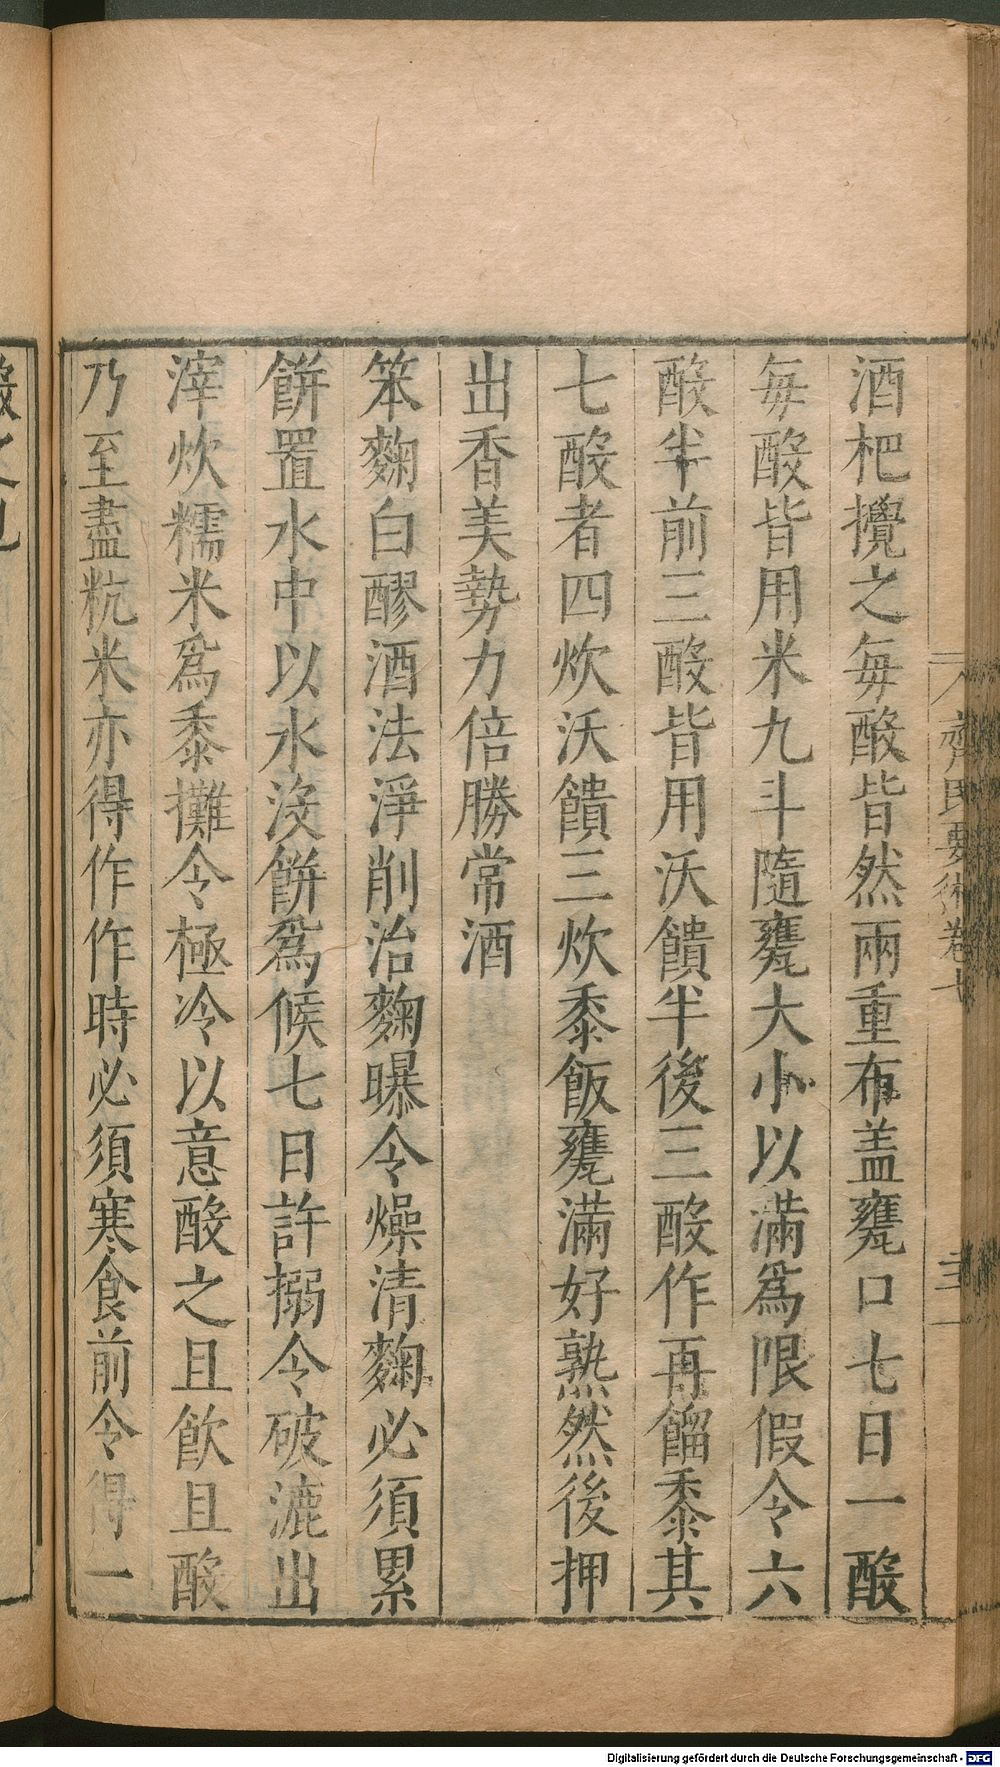 酒杷攪之每酘皆然兩重布盖甕口七日一酘
每酘皆用米九斗隨甕大小以滿爲限假令六
酘半前三酘皆用沃饋半後三酘作再餾黍其
七酘者四炊沃饋三炊黍飯甕滿好熟然後押
出香美勢力倍勝常酒
笨麴白醪酒法淨削治麴曝令燥清麴必須累
餅置水中以水沒餅爲候七日許搦令破漉出
滓炊糯米爲黍攤令極冷以意酘之且飮且酘
乃至盡秔米亦得作作時必須寒食前令得一
齊民要術卷七
Digitalisierung gefördert durch die Deutsche Forschungsgemeinschaft - DFG